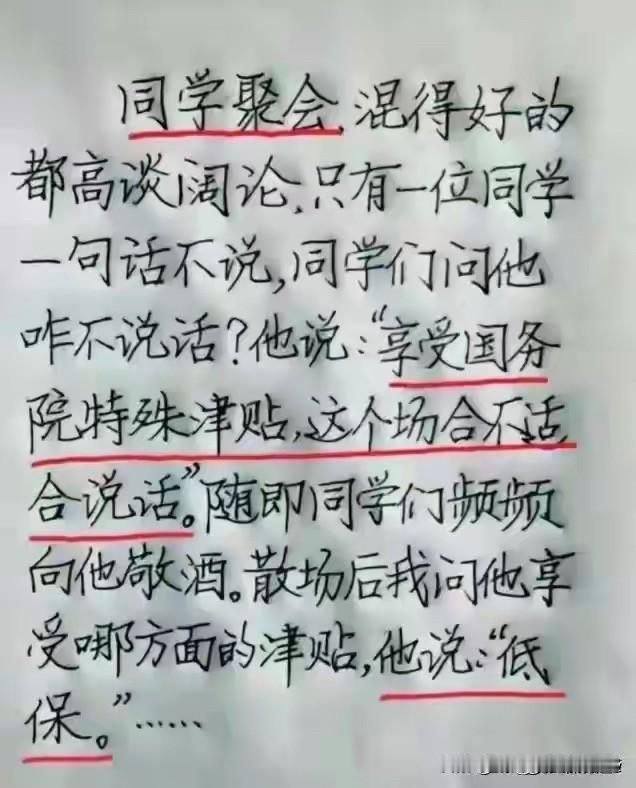 同学聚会,混得好的
都高谈阔论,只有一位同学
一句话不说,同学们问他
咋不说话?他说:“享受国务
院特殊津贴,这个场合不适
合说话”。随即同学们频频
向他敬酒。散场后我问他享
受哪方面的津贴,他说:“低
保。”……